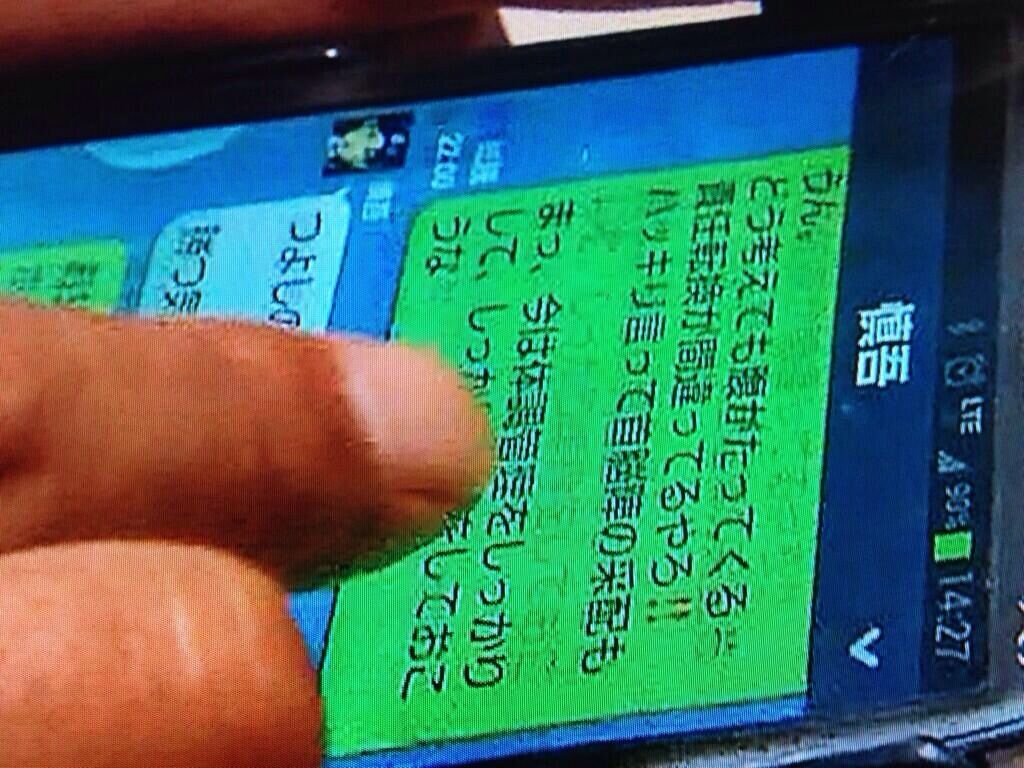 LTE 90% 14:27
慎吾
うん。
どう考えても腹がたってくる
が間違ってるやろ!!
ハッキリ言って首脳陣の采配も
まっ、今は体調管理をしっかり
して、しっか をしておこ
うな
既読
22:00
慎吾
つよしの
勝つ